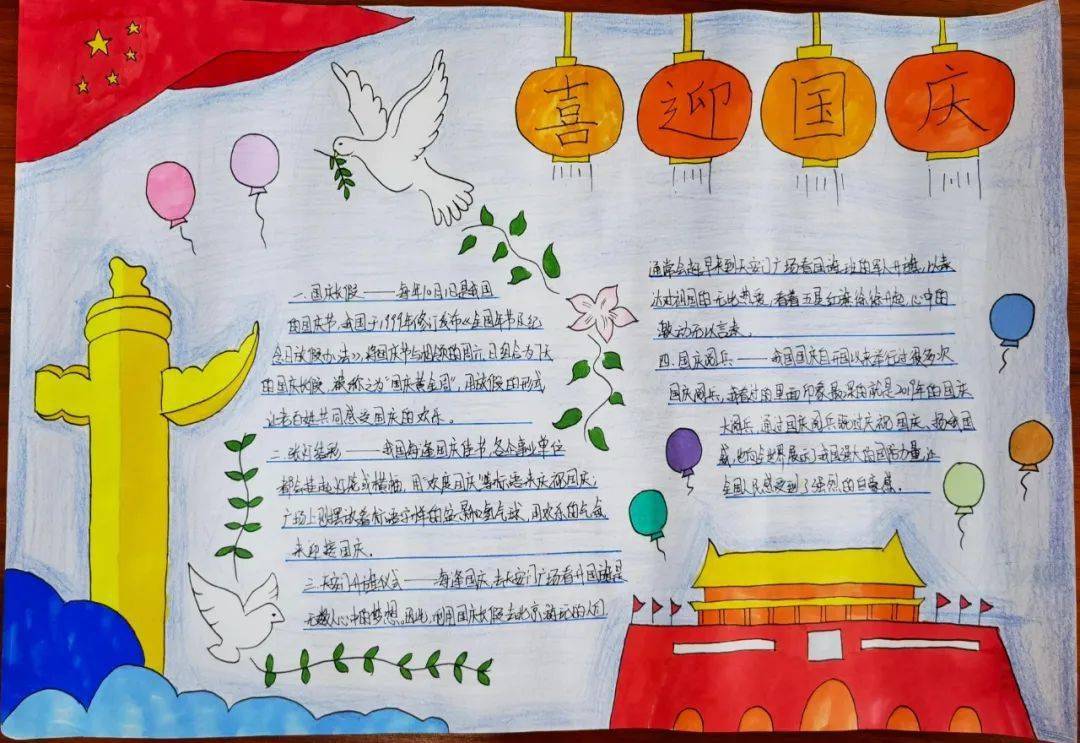 喜迎国庆
一.国庆长假——每年10月1日是我国
的国庆节,我国于1999年修订发布《全国年节及纪
念日放假办法》,将国庆节与相邻的周六、日组合为7天
的国庆长假,被称之为“国庆黄金周”,用放假的形式
让老百姓共同感受国庆的欢乐。
二.张灯结彩——我国每逢国庆佳节,各个事业单位
都会挂起灯笼或横袖,用“欢度国庆”等标语来庆祝国庆;
广场上则摆放着标语字样的盆景和氢气球,用欢乐的气氛
来迎接国庆。
三.天安门升旗仪式——每逢国庆,去天安门广场看升国旗是
无数人心中的梦想。因此,利用国庆长假去北京游玩的人们
通常会起早来到天安门广场看国旗班的军人升旗,以表
达对祖国的无比热爱,看着五星红旗徐徐升起,心中的
激动无以言表。
四.国庆阅兵——我国国庆自开国以来举行过很多次
国庆阅兵,我看过的里面印象最深的就是2019年的国庆
大阅兵,通过国庆阅兵既对庆祝国庆、扬我国
威,也向世界展示了我国强大的国防力量,让
全国人民感受到了强烈的自豪感。